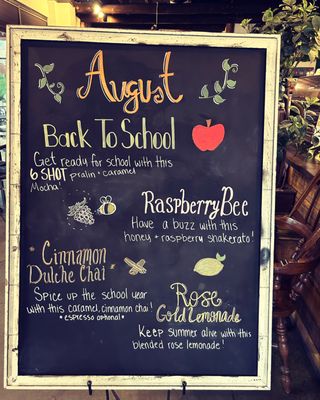 August
Back To School
Get ready for school with this
6 SHOT pralin + caramel
Mocha!
RaspberryBee
Have a buzz with this
honey + raspberry shakerato!
Cinnamon
Dulche Chai
Spice up the school year
with this caramel, cinnamon chai!
* espresso optional *
Rose
Gold Lemonade
Keep summer alive with this
blended rose lemonade!